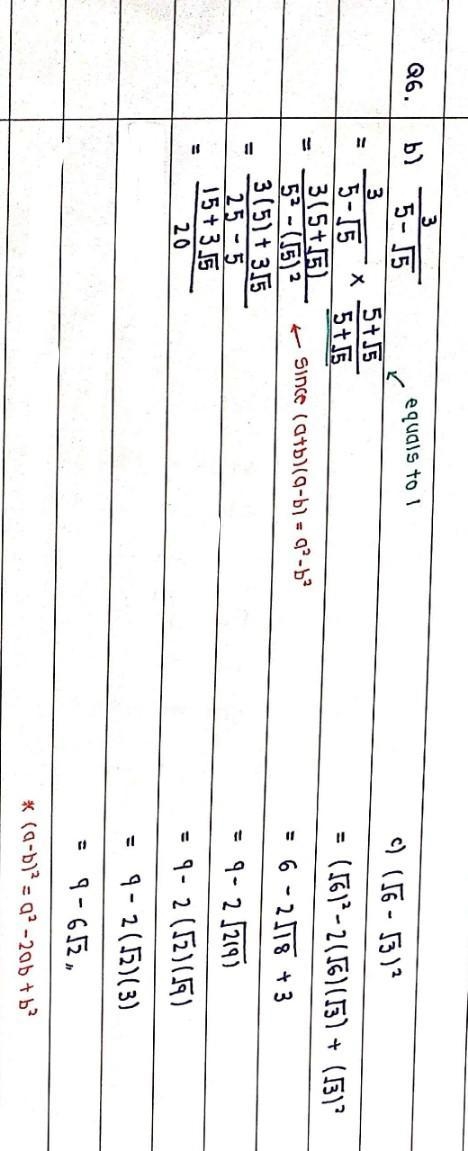 Q6. b) 3/(5-√5)
= 3/(5-√5) × (5+√5)/(5+√5) ← equals to 1
= 3(5+√5)/(5²-(√5)²) ← since (a+b)(a-b) = a²-b²
= (3(5)+3√5)/(25-5)
= (15+3√5)/20
c) (√6 - √3)²
= (√6)² - 2(√6)(√3) + (√3)²
= 6 - 2√18 + 3
= 9 - 2√2(9)
= 9 - 2(√2)(√9)
= 9 - 2(√2)(3)
= 9 - 6√2 〃
* (a-b)² = a² - 2ab + b²